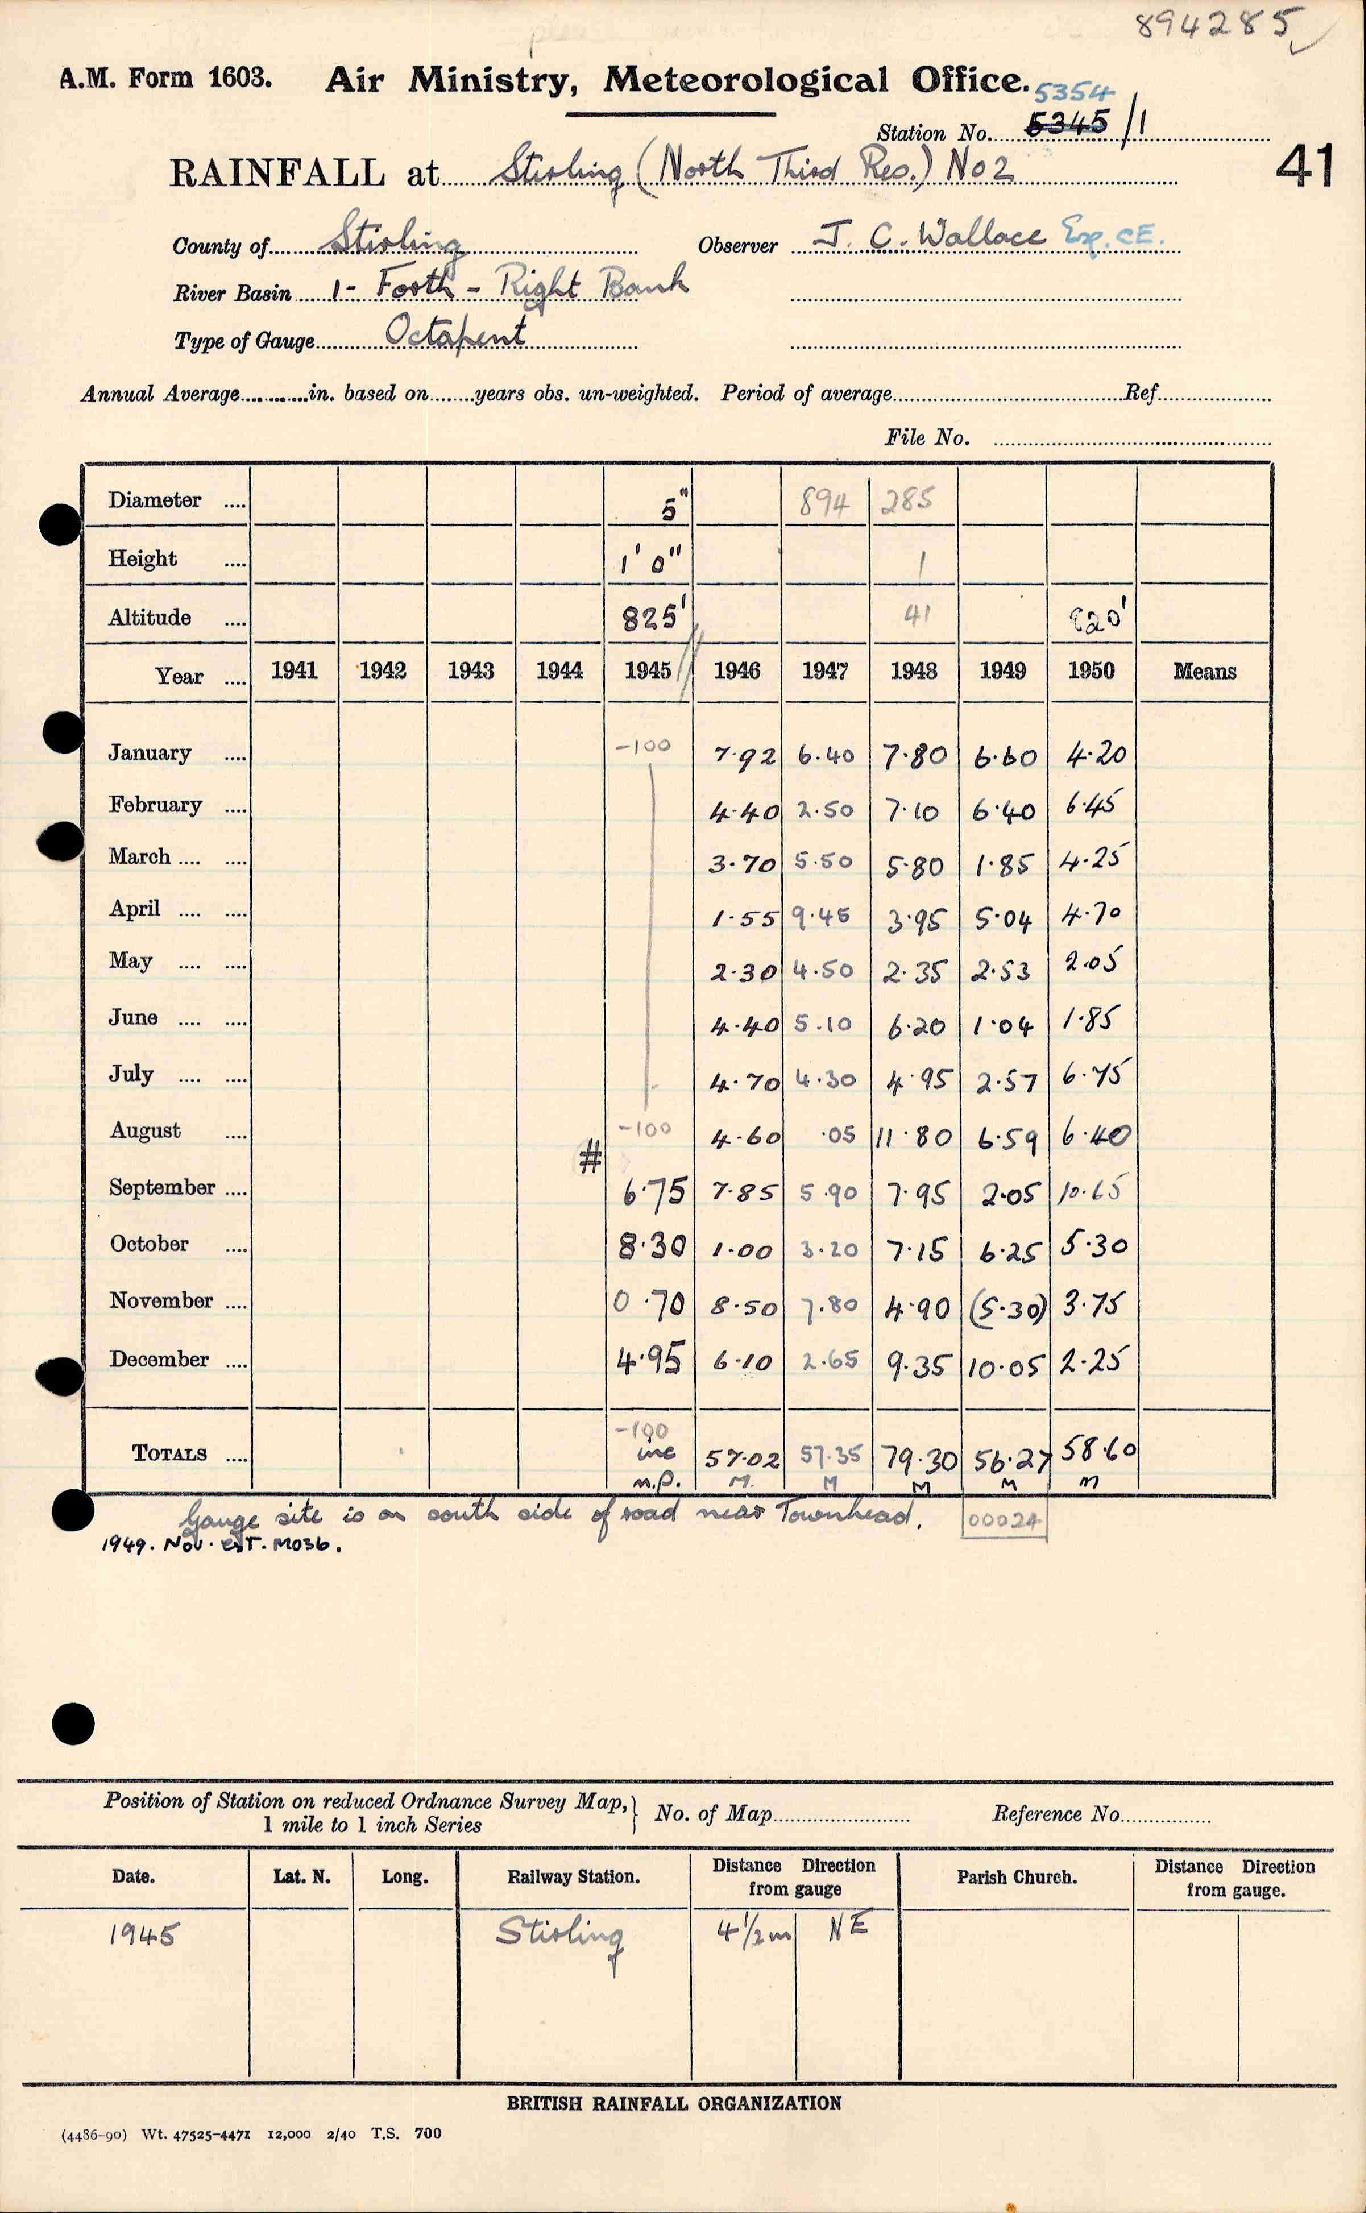 894285
A.M. Form 1603. Air Ministry, Meteorological Office.
5354
Station No. 5345/1
RAINFALL at Stirling (North Third Res.) No2
41
County of Stirling Observer J. C. Wallace Esq. CE.
River Basin 1- Forth - Right Bank
Type of Gauge Octapent
Annual Average..........in. based on.......years obs. un-weighted. Period of average.......... Ref..........
File No. ..........
Diameter .... 5" 894 285
Height .... 1' 0" 1
Altitude .... 825' 41 820'
Year .... 1941 1942 1943 1944 1945 1946 1947 1948 1949 1950 Means
January .... -100 7.92 6.40 7.80 6.60 4.20
February .... 4.40 2.50 7.10 6.40 6.45
March .... .... 3.70 5.50 5.80 1.85 4.25
April .... .... 1.55 9.45 3.95 5.04 4.70
May .... .... 2.30 4.50 2.35 2.53 2.05
June .... .... 4.40 5.10 6.20 1.04 1.85
July .... .... 4.70 4.30 4.95 2.57 6.75
August .... -100 4.60 .05 11.80 6.59 6.40
#
September .... 6.75 7.85 5.90 7.95 2.05 10.65
October .... 8.30 1.00 3.20 7.15 6.25 5.30
November .... 0.70 8.50 7.80 4.90 (5.30) 3.75
December .... 4.95 6.10 2.65 9.35 10.05 2.25
-100
TOTALS .... inc 57.02 57.35 79.30 56.27 58.60
n.p. M. M M M M
Gauge site is on south side of road near Townhead. 00024
1949. Nov. EST. M036.
Position of Station on reduced Ordnance Survey Map, } No. of Map.......... Reference No..........
1 mile to 1 inch Series
Date. Lat. N. Long. Railway Station. Distance Direction from gauge Parish Church. Distance Direction from gauge.
1945 Stirling 4 1/2 m NE
BRITISH RAINFALL ORGANIZATION
(4486-90) Wt. 47525-4471 12,000 2/40 T.S. 700